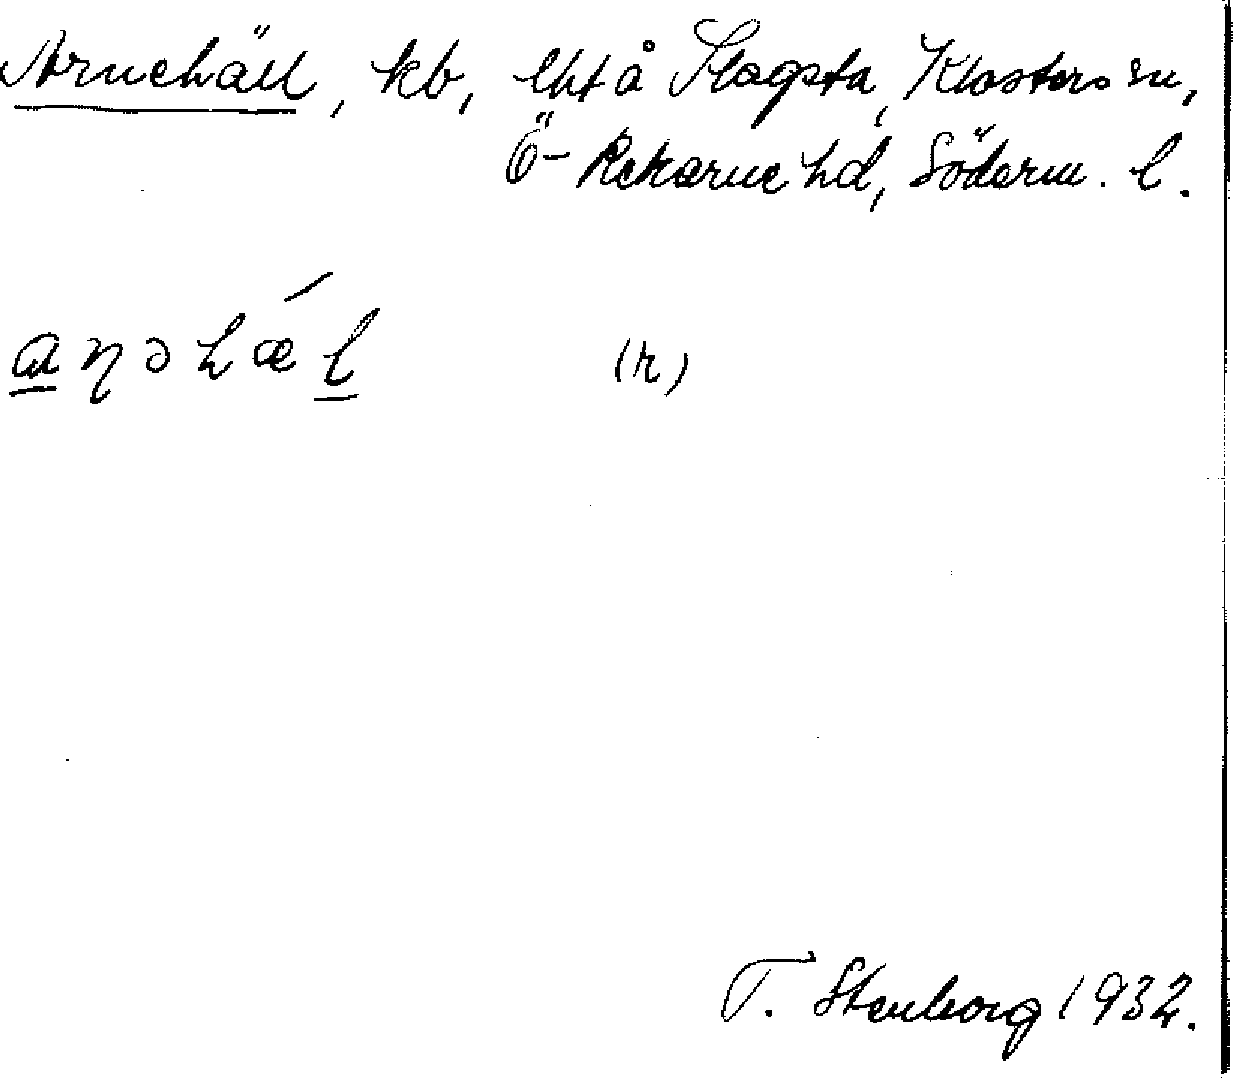 Arnehäll, kb, lht å Slagsta, Klosters sn,
Ö-Rekarne hd, Söderm. l.
aṇəhǽl (r)
T. Stenborg 1932.